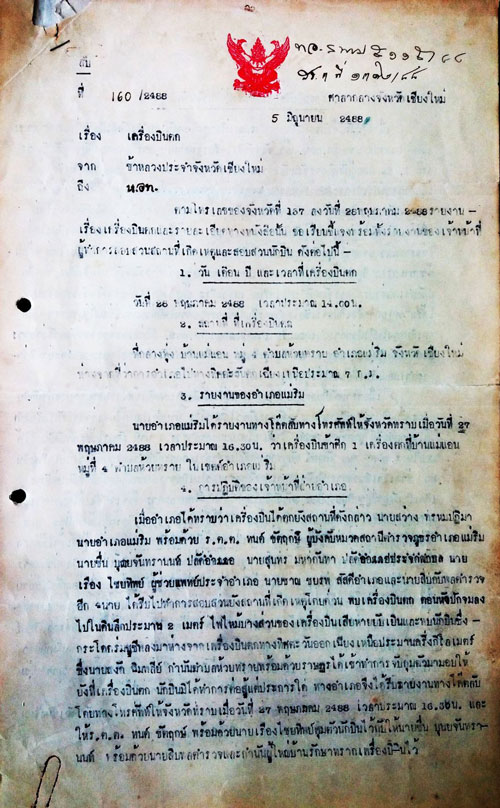 ลับ
ที่ 160/2488 ศาลากลางจังหวัดเชียงใหม่
5 มิถุนายน 2488
เรื่อง เครื่องบินตก
จาก ข้าหลวงประจำจังหวัดเชียงใหม่
ถึง น.อท.
ตามโทรเลขของจังหวัดที่ 137 ลงวันที่ 28 พฤษภาคม 2488 รายงาน -
เรื่องเครื่องบินตกและรายละเอียดทางหนังสือนั้น ขอเรียนชี้แจงพร้อมทั้งรายงานของเจ้าหน้าที่
ผู้ทำการสอบสวนสถานที่เกิดเหตุและสอบสวนนักบิน ดังต่อไปนี้ -
1. วัน เดือน ปี และเวลาที่เครื่องบินตก
วันที่ 26 พฤษภาคม 2488 เวลาประมาณ 14.00 น.
2. สถานที่ ที่เครื่องบินตก
ที่กลางทุ่ง บ้านแม่แอน หมู่ 4 ตำบลห้วยทราย อำเภอแม่ริม จังหวัดเชียงใหม่
ห่างจากที่ว่าการอำเภอไปทางทิศตะวันตกเฉียงเหนือประมาณ 7 ก.ม.
3. รายงานของอำเภอแม่ริม
นายอำเภอแม่ริมได้รายงานทางโค๊ดลับทางโทรศัพท์ให้จังหวัดทราบเมื่อวันที่ 27
พฤษภาคม 2488 เวลาประมาณ 16.30 น. ว่าเครื่องบินข้าศึก 1 เครื่องตกที่บ้านแม่แอน
หมู่ที่ 4 ตำบลห้วยทราย ในเขตอำเภอแม่ริม
4. การปฏิบัติของเจ้าหน้าที่ฝ่ายอำเภอ
เมื่ออำเภอได้ทราบว่าเครื่องบินได้ตกยังสถานที่ดังกล่าว นายสว่าง
นายอำเภอแม่ริม พร้อมด้วย ร.ต.ต. หนต์ ขัติฤกษ์ ผู้บังคับหมวดสถานีตำรวจภูธรอำเภอแม่ริม
นายชื่น บุณยจันทรานนท์ ปลัดอำเภอ นายสุนทร มหากันทา ปลัดอำเภอประจำตำบล นาย
เรือง ไชยทิพย์ ผู้ช่วยแพทย์ประจำอำเภอ นายชาญ สัสดีอำเภอและนายสิบกับพลตำรวจ
อีก นาย ได้รีบไปทำการสอบสวนยังสถานที่เกิดเหตุโดยด่วน พบเครื่องบินตก ตอนหัวปักจมลง
ไปในดินลึกประมาณ 2 เมตร์ ไฟไหม้บางส่วนของเครื่องบินเสียหายยับเยินและพบนักบินซึ่ง -
กระโดดร่มชูชีพลงมาห่างจากเครื่องบินตกทางทิศตะวันออกเฉียงเหนือประมาณครึ่งกิโลเมตร์
ซึ่งนาย กำนันตำบลห้วยทรายพร้อมด้วยราษฎรได้เข้าทำการ จับกุมตัวมามอบให้
ยังที่เครื่องบินตก นักบินมิได้ทำการต่อสู้แต่ประการใด ทางอำเภอจึงได้รีบรายงานทางโค๊ดลับ
โดยทางโทรศัพท์ให้จังหวัดทราบเมื่อวันที่ 27 พฤษภาคม 2488 เวลาประมาณ 16.30 น. และ
ให้ ร.ต.ต. หนต์ ขัติฤกษ์ พร้อมด้วยนายเรือง ไชยทิพย์คุมตัวนักบินไว้ กับให้นายชื่น บุณยจันทรา-
นนท์ พร้อมด้วยนายสิบพลตำรวจและกำนันผู้ใหญ่บ้านรักษาซากเครื่องบินไว้